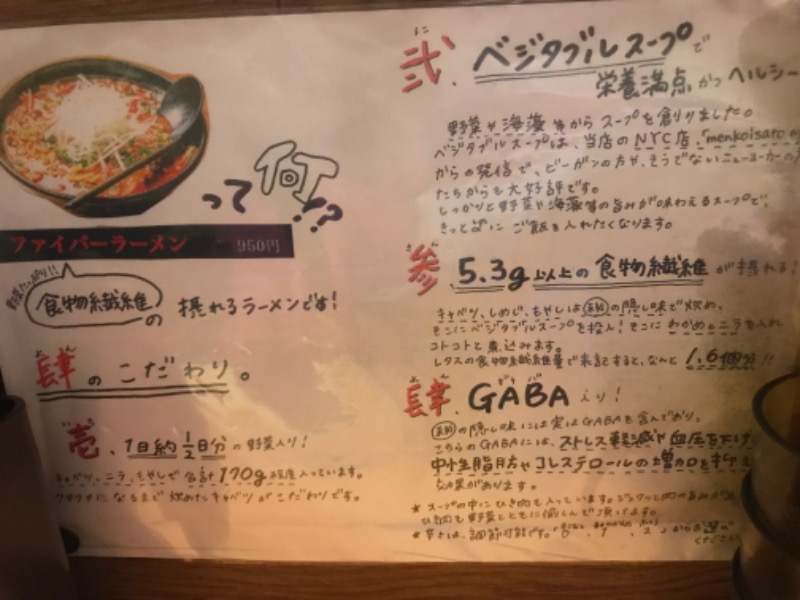 って何!?
ファイバーラーメン 950円
野菜たっぷり!!
食物繊維の摂れるラーメンです!
よん
肆のこだわり。
いち
壱、1日約1/2日分の野菜入り!
キャベツ、ニラ、もやしで合計170g程度入っています。
クタクタになるまで炒めたキャベツがこだわりです。
に
弐、ベジタブルスープで
栄養満点かつヘルシー
野菜や海藻等からスープを創りました。
ベジタブルスープは、当店のNYC店、「menkoisato
からの発信で、ビーガンの方や、そうでないニューヨーカーの
たちからも大好評です。
しっかりと野菜や海藻等の旨みが味わえるスープで、
きっと〆にご飯を入れたくなります。
さん
参、5.3g以上の食物繊維が摂れる!
キャベツ、しめじ、もやしは の隠し味で炒め、
そこにベジタブルスープを投入!そこにわかめとニラを入れ
コトコトと煮込みます。
レタスの食物繊維量で表記すると、なんと1.6個分!!
よん ギャバ
肆、GABA入り!
の隠し味には実はGABAを含んでおり、
こちらのGABAには、ストレス軽減や血圧を下げ
中性脂肪やコレステロールの増加を抑え
な効果があります。
★スープの中にひき肉も入っています。ジュワッと肉の旨みが
ひき肉も野菜とともに愉しんで頂けます。
★辛さは、調節可能です。 0、1、2 からお選び
ください